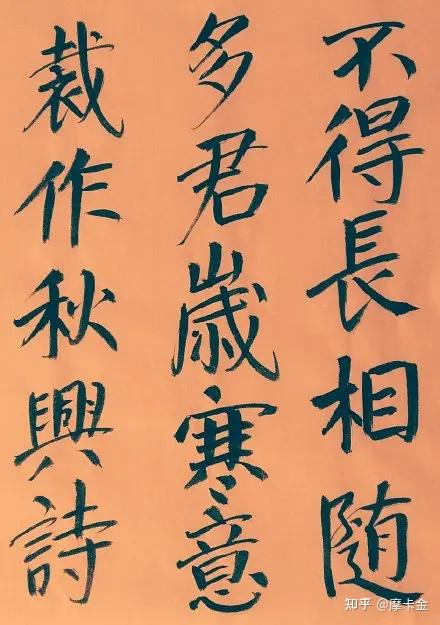 不得長相随
多君歳寒意
裁作秋興詩
知乎 @摩卡金